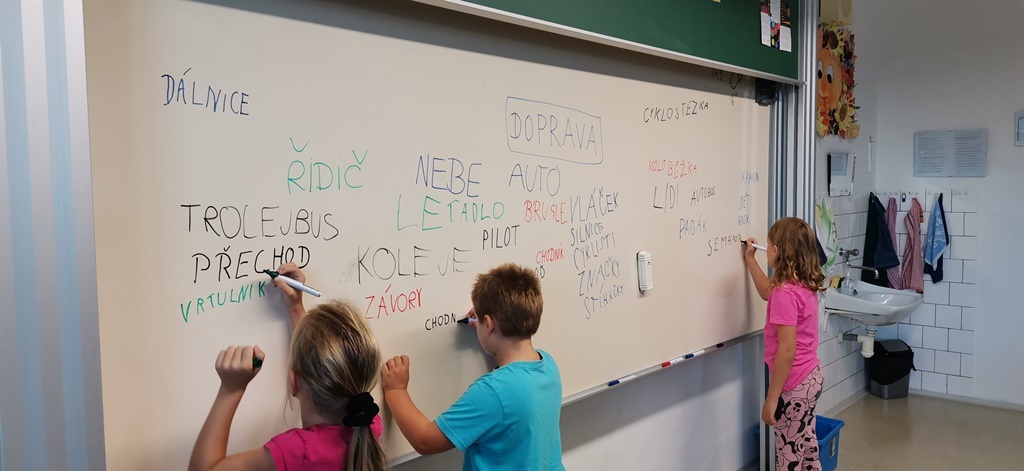 DÁLNICE
DOPRAVA
CYKLOSTEZKA
ŘIDIČ
NEBE
AUTO
KOLOBĚŽKA
TROLEJBUS
LETADLO
BRUSLE
VLÁČEK
LÍDI
AUTOBUS
PILOT
SILNICE
PADÁK
PŘECHOD
KOLEJE
CHODNÍK
CYKLISTI
SEMAFOR
VRTULNÍK
ZÁVORY
ZNAČKY
STÍHAČKY
CHODN